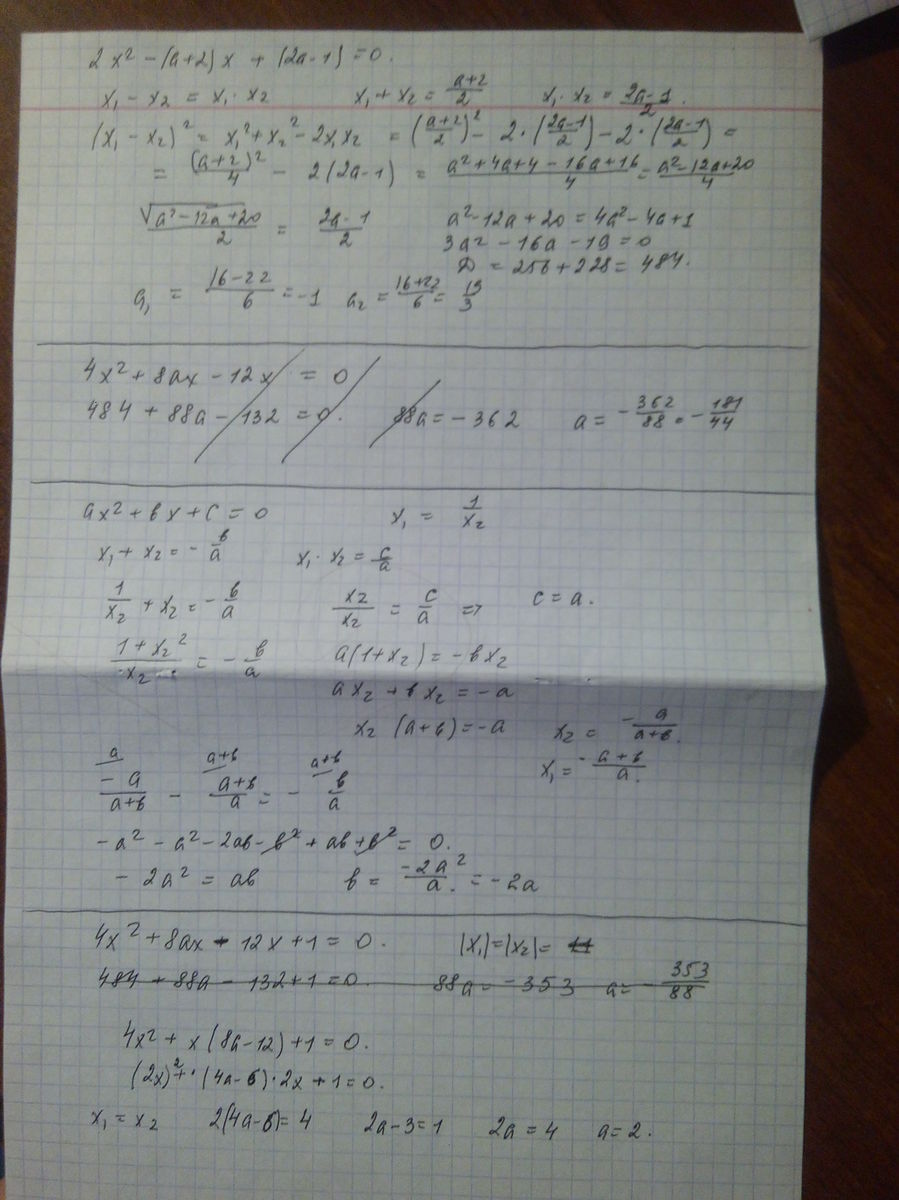 2x² - (a+2)x + (2a-1) = 0.
x₁ - x₂ = x₁ · x₂    x₁ + x₂ = (a+2)/2    x₁ · x₂ = (2a-1)/2.
(x₁ - x₂)² = x₁² + x₂² - 2x₁x₂ = ((a+2)/2)² - 2·((2a-1)/2) - 2·((2a-1)/2) =
= (a+2)²/4 - 2(2a-1) = (a²+4a+4-16a+16)/4 = (a²-12a+20)/4
√(a²-12a+20)/2 = (2a-1)/2    a²-12a+20 = 4a²-4a+1
3a² - 16a - 19 = 0
D = 256 + 228 = 484.
a₁ = (16-22)/6 = -1    a₂ = (16+22)/6 = 19/3
4x² + 8ax - 12x = 0
484 + 88a - 132 = 0.    88a = -362    a = -362/88 = -181/44
ax² + bx + c = 0    x₁ = 1/x₂
x₁ + x₂ = -b/a    x₁ · x₂ = c/a
1/x₂ + x₂ = -b/a    x₂/x₂ = c/a ⇒    c = a.
(1+x₂²)/x₂ = -b/a    a(1+x₂) = -bx₂
ax₂ + bx₂ = -a
x₂ (a+b) = -a    x₂ = -a/(a+b).
x₁ = -(a+b)/a.
a    a+b    a+b
-a/(a+b) - (a+b)/a = -b/a
-a² - a² - 2ab - b² + ab + b² = 0.
-2a² = ab    b = -2a²/a = -2a
4x² + 8ax - 12x + 1 = 0.    |x₁| = |x₂| = 11
484 + 88a - 132 + 1 = 0.    88a = -353    a = -353/88
4x² + x(8a-12) + 1 = 0.
(2x)² + (4a-6)·2x + 1 = 0.
x₁ = x₂    2(4a-6) = 4    2a-3 = 1    2a = 4    a = 2.